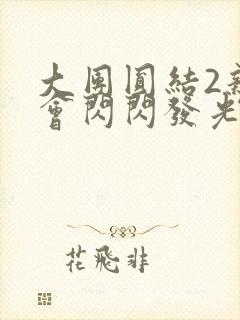 大團圓結2新
會閃閃發光
花飛非